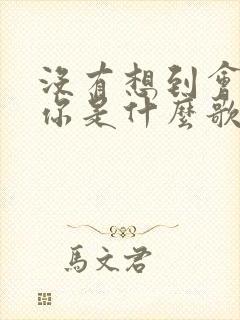 沒有想到會
你是什麼歌
馬文君